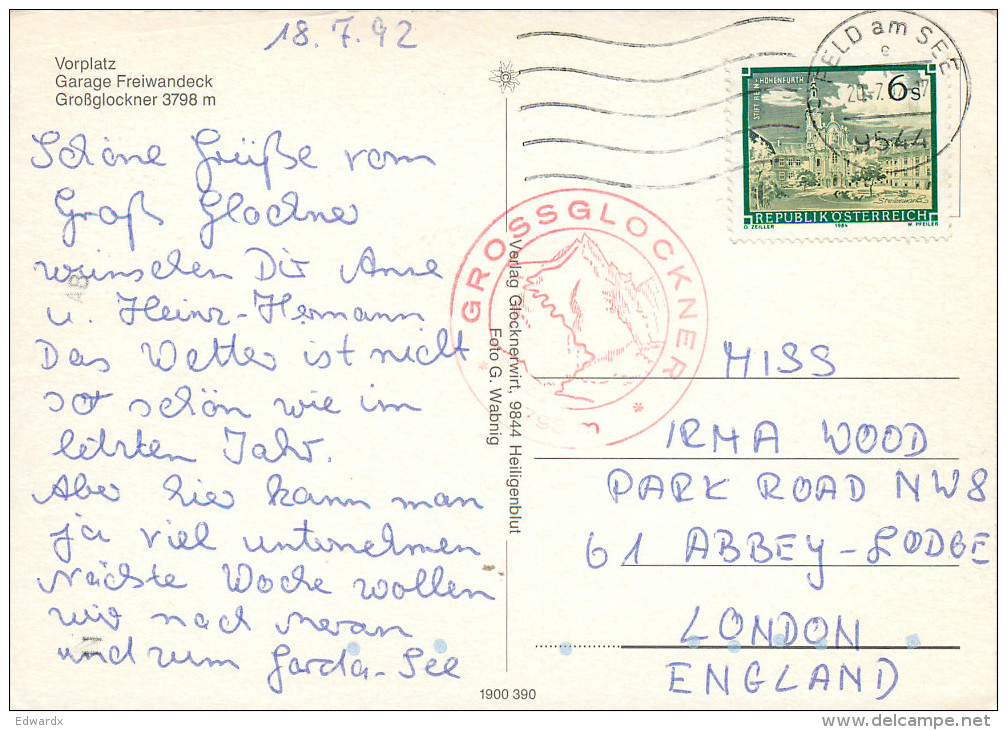 18.7.92
Vorplatz
Garage Freiwandeck
Großglockner 3798 m
Schöne Grüße vom
Groß Glockner
wünschen Dir Anne
u. Heinz-Hermann.
Das Wetter ist nicht
so schön wie im
letzten Jahr.
Aber hier kann man
ja viel unternehmen
Nächste Woche wollen
wir nach Meran
und zum Garda-See
Verlag Glocknerwirt, 9844 Heiligenblut
Foto G. Wabnig
1900 390
GROSSGLOCKNER
FELD am SEE
9544
STIFT REIN-HOHENFURTH
6 S
REPUBLIK ÖSTERREICH
O. ZEILLER 1984 W. PFEILER
MISS
IRMA WOOD
PARK ROAD NW8
61 ABBEY-LODGE
LONDON
ENGLAND
Edwardx
www.delcampe.net